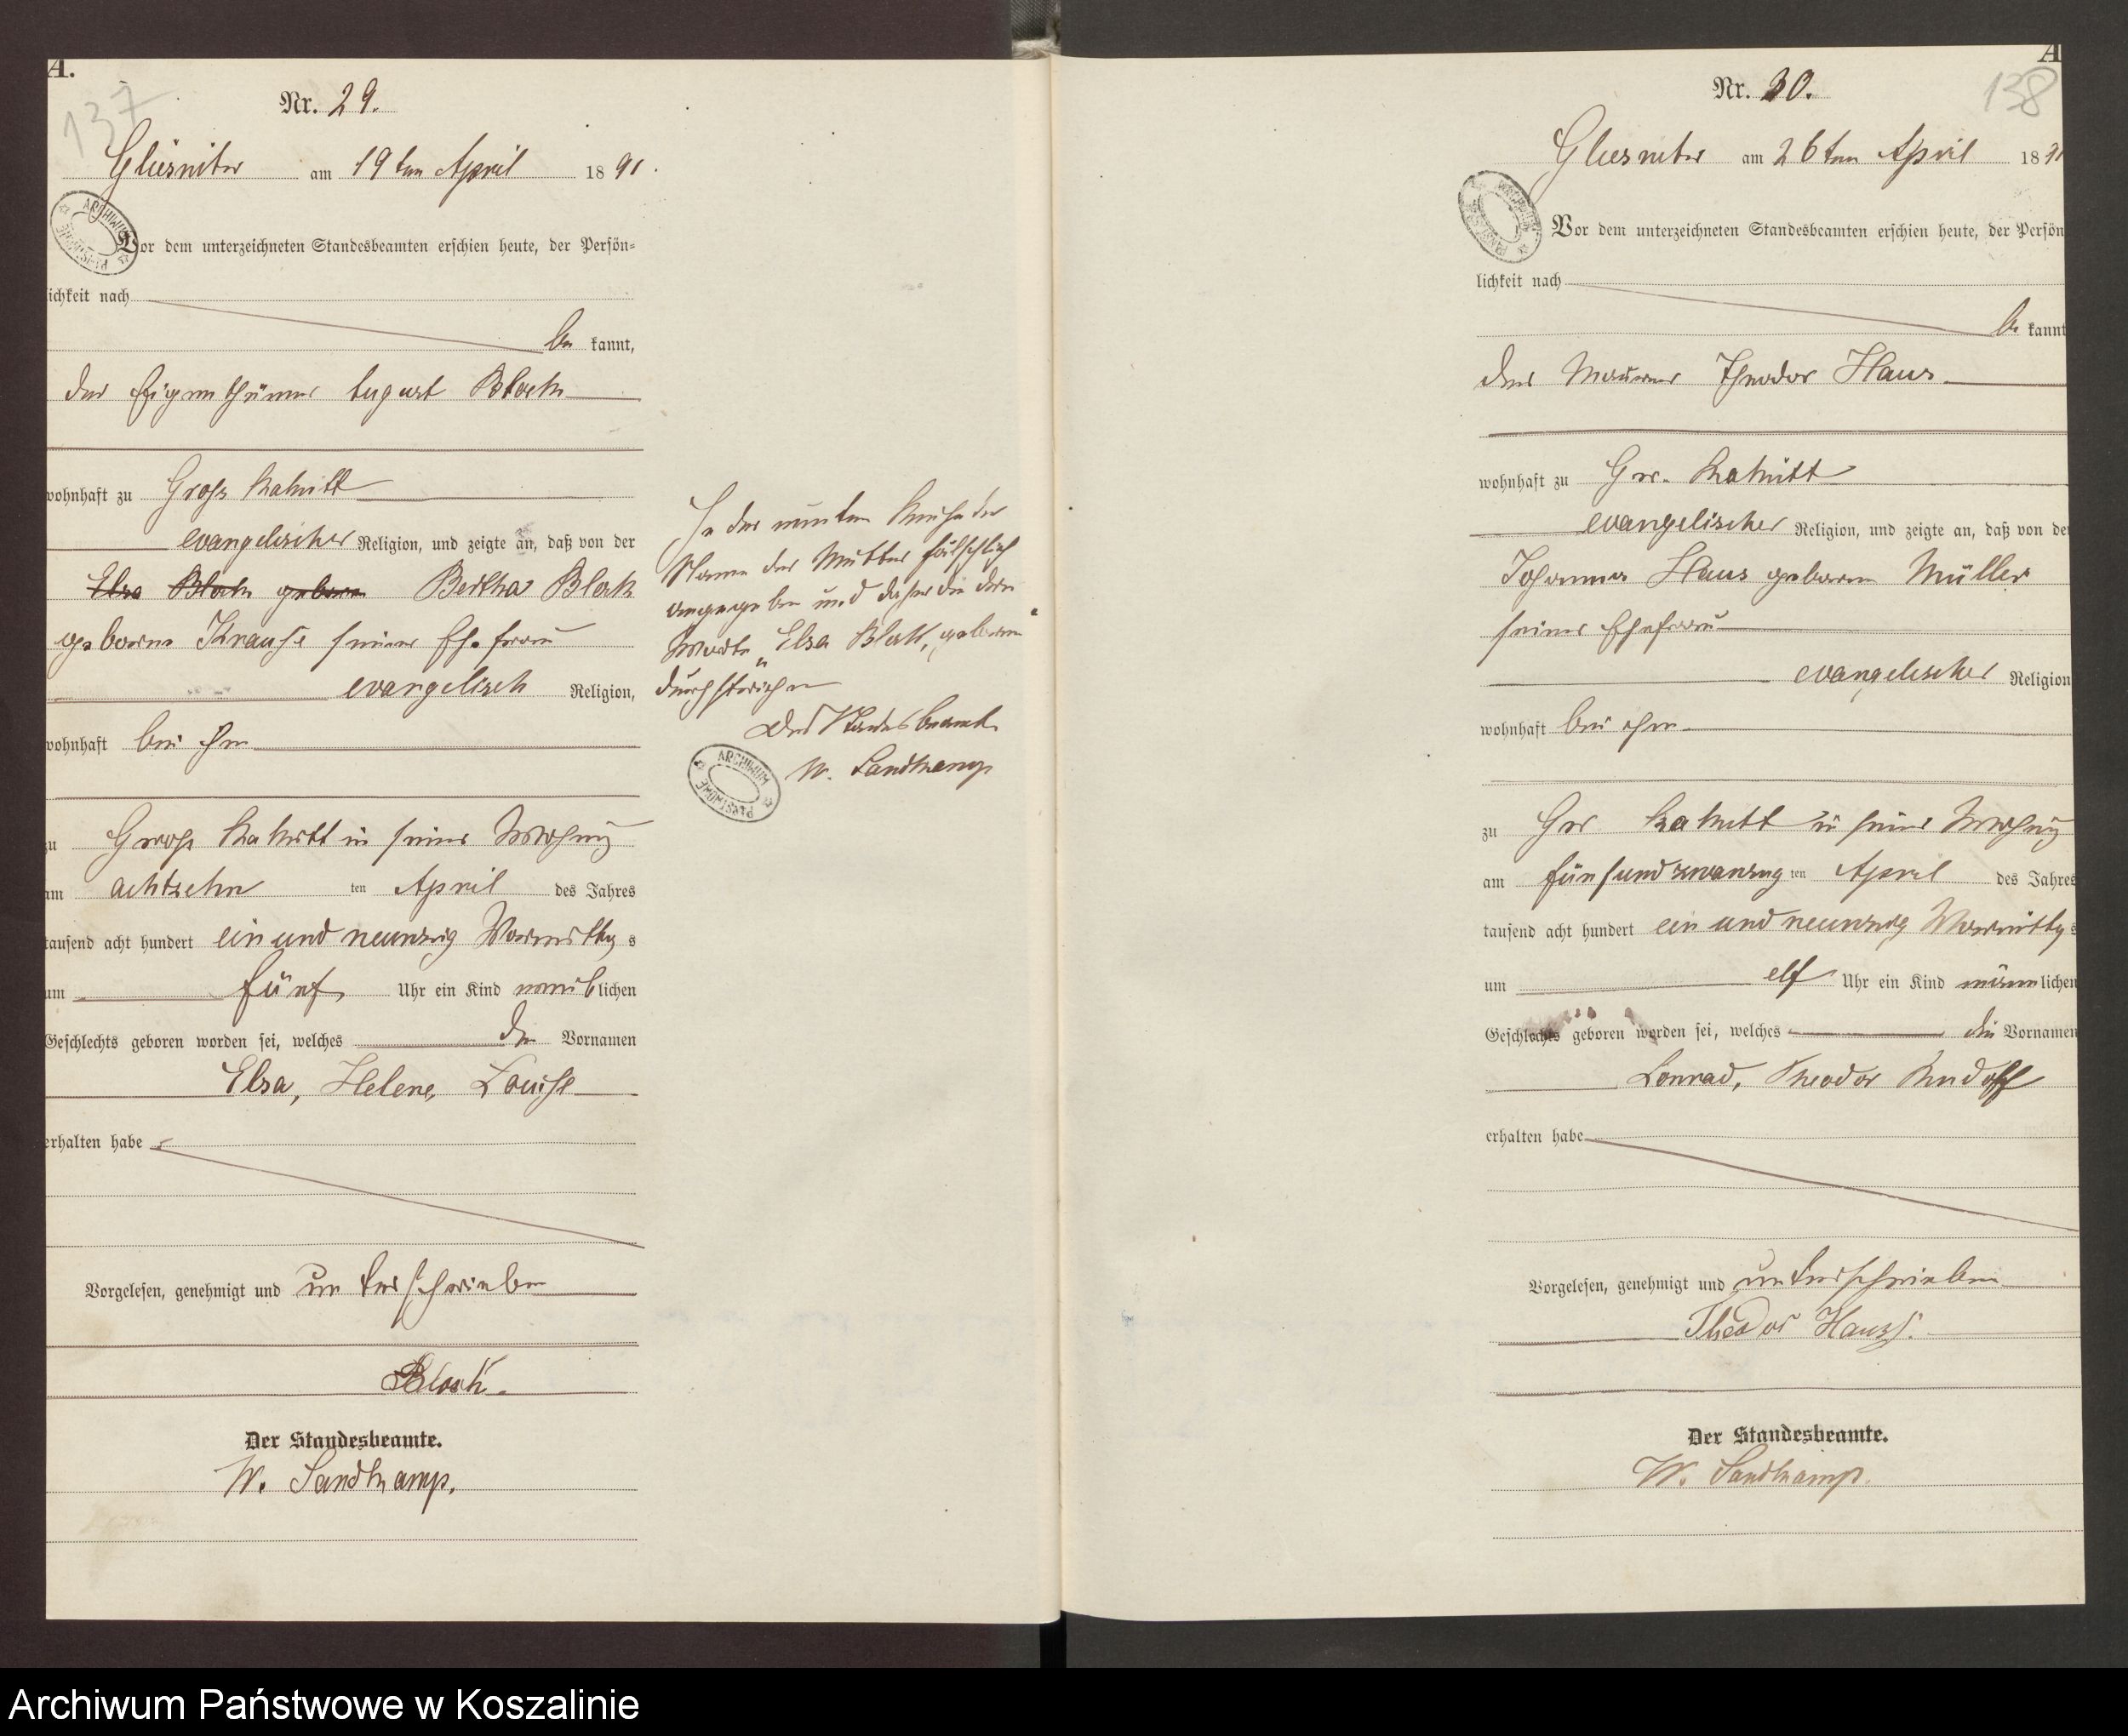 A.
137
Nr. 29.
am 19ten April 1891.
Vor dem unterzeichneten Standesbeamten erschien heute, der Persön=
lichkeit nach
be kannt,
der Eigenthümer August Block
wohnhaft zu Groß Rakitt
evangelischer Religion, und zeigte an, daß von der
Elsa Block geboren Bertha Block
geborne Krause seiner Ehefrau
evangelisch Religion,
wohnhaft bei ihm
zu Groß Rakitt in seiner Wohnung
am achtzehn ten April des Jahres
tausend acht hundert ein und neunzig Vormittag s
um fünf Uhr ein Kind weiblichen
Geschlechts geboren worden sei, welches die Vornamen
Elsa, Helene, Louise
erhalten habe
Vorgelesen, genehmigt und unterschrieben
Block.
Der Standesbeamte.
W. Sandkamp.
In der neunten Reihe der
Name der Mutter fälschlich
angegeben und daher die drei
Worte „Elsa Block, geboren“
durchstrichen
Der Standesbeamte
W. Sandkamp
ARCHIWUM PAŃSTWOWE
A
138
Nr. 30.
am 26ten April 1891
Vor dem unterzeichneten Standesbeamten erschien heute, der Persön
lichkeit nach
be kannt
der Maurer Theodor Haus
wohnhaft zu Gr. Rakitt
evangelischer Religion, und zeigte an, daß von der
Johanna Haus geboren Müller
seiner Ehefrau
evangelischer Religion
wohnhaft bei ihm
zu Gr Rakitt in seiner Wohnung
am fünfundzwanzig ten April des Jahres
tausend acht hundert ein und neunzig Vormittag s
um elf Uhr ein Kind männlichen
Geschlechts geboren worden sei, welches die Vornamen
Conrad, Theodor Rudolf
erhalten habe
Vorgelesen, genehmigt und unterschrieben
Theodor Hauss.
Der Standesbeamte.
W. Sandkamp.
Archiwum Państwowe w Koszalinie